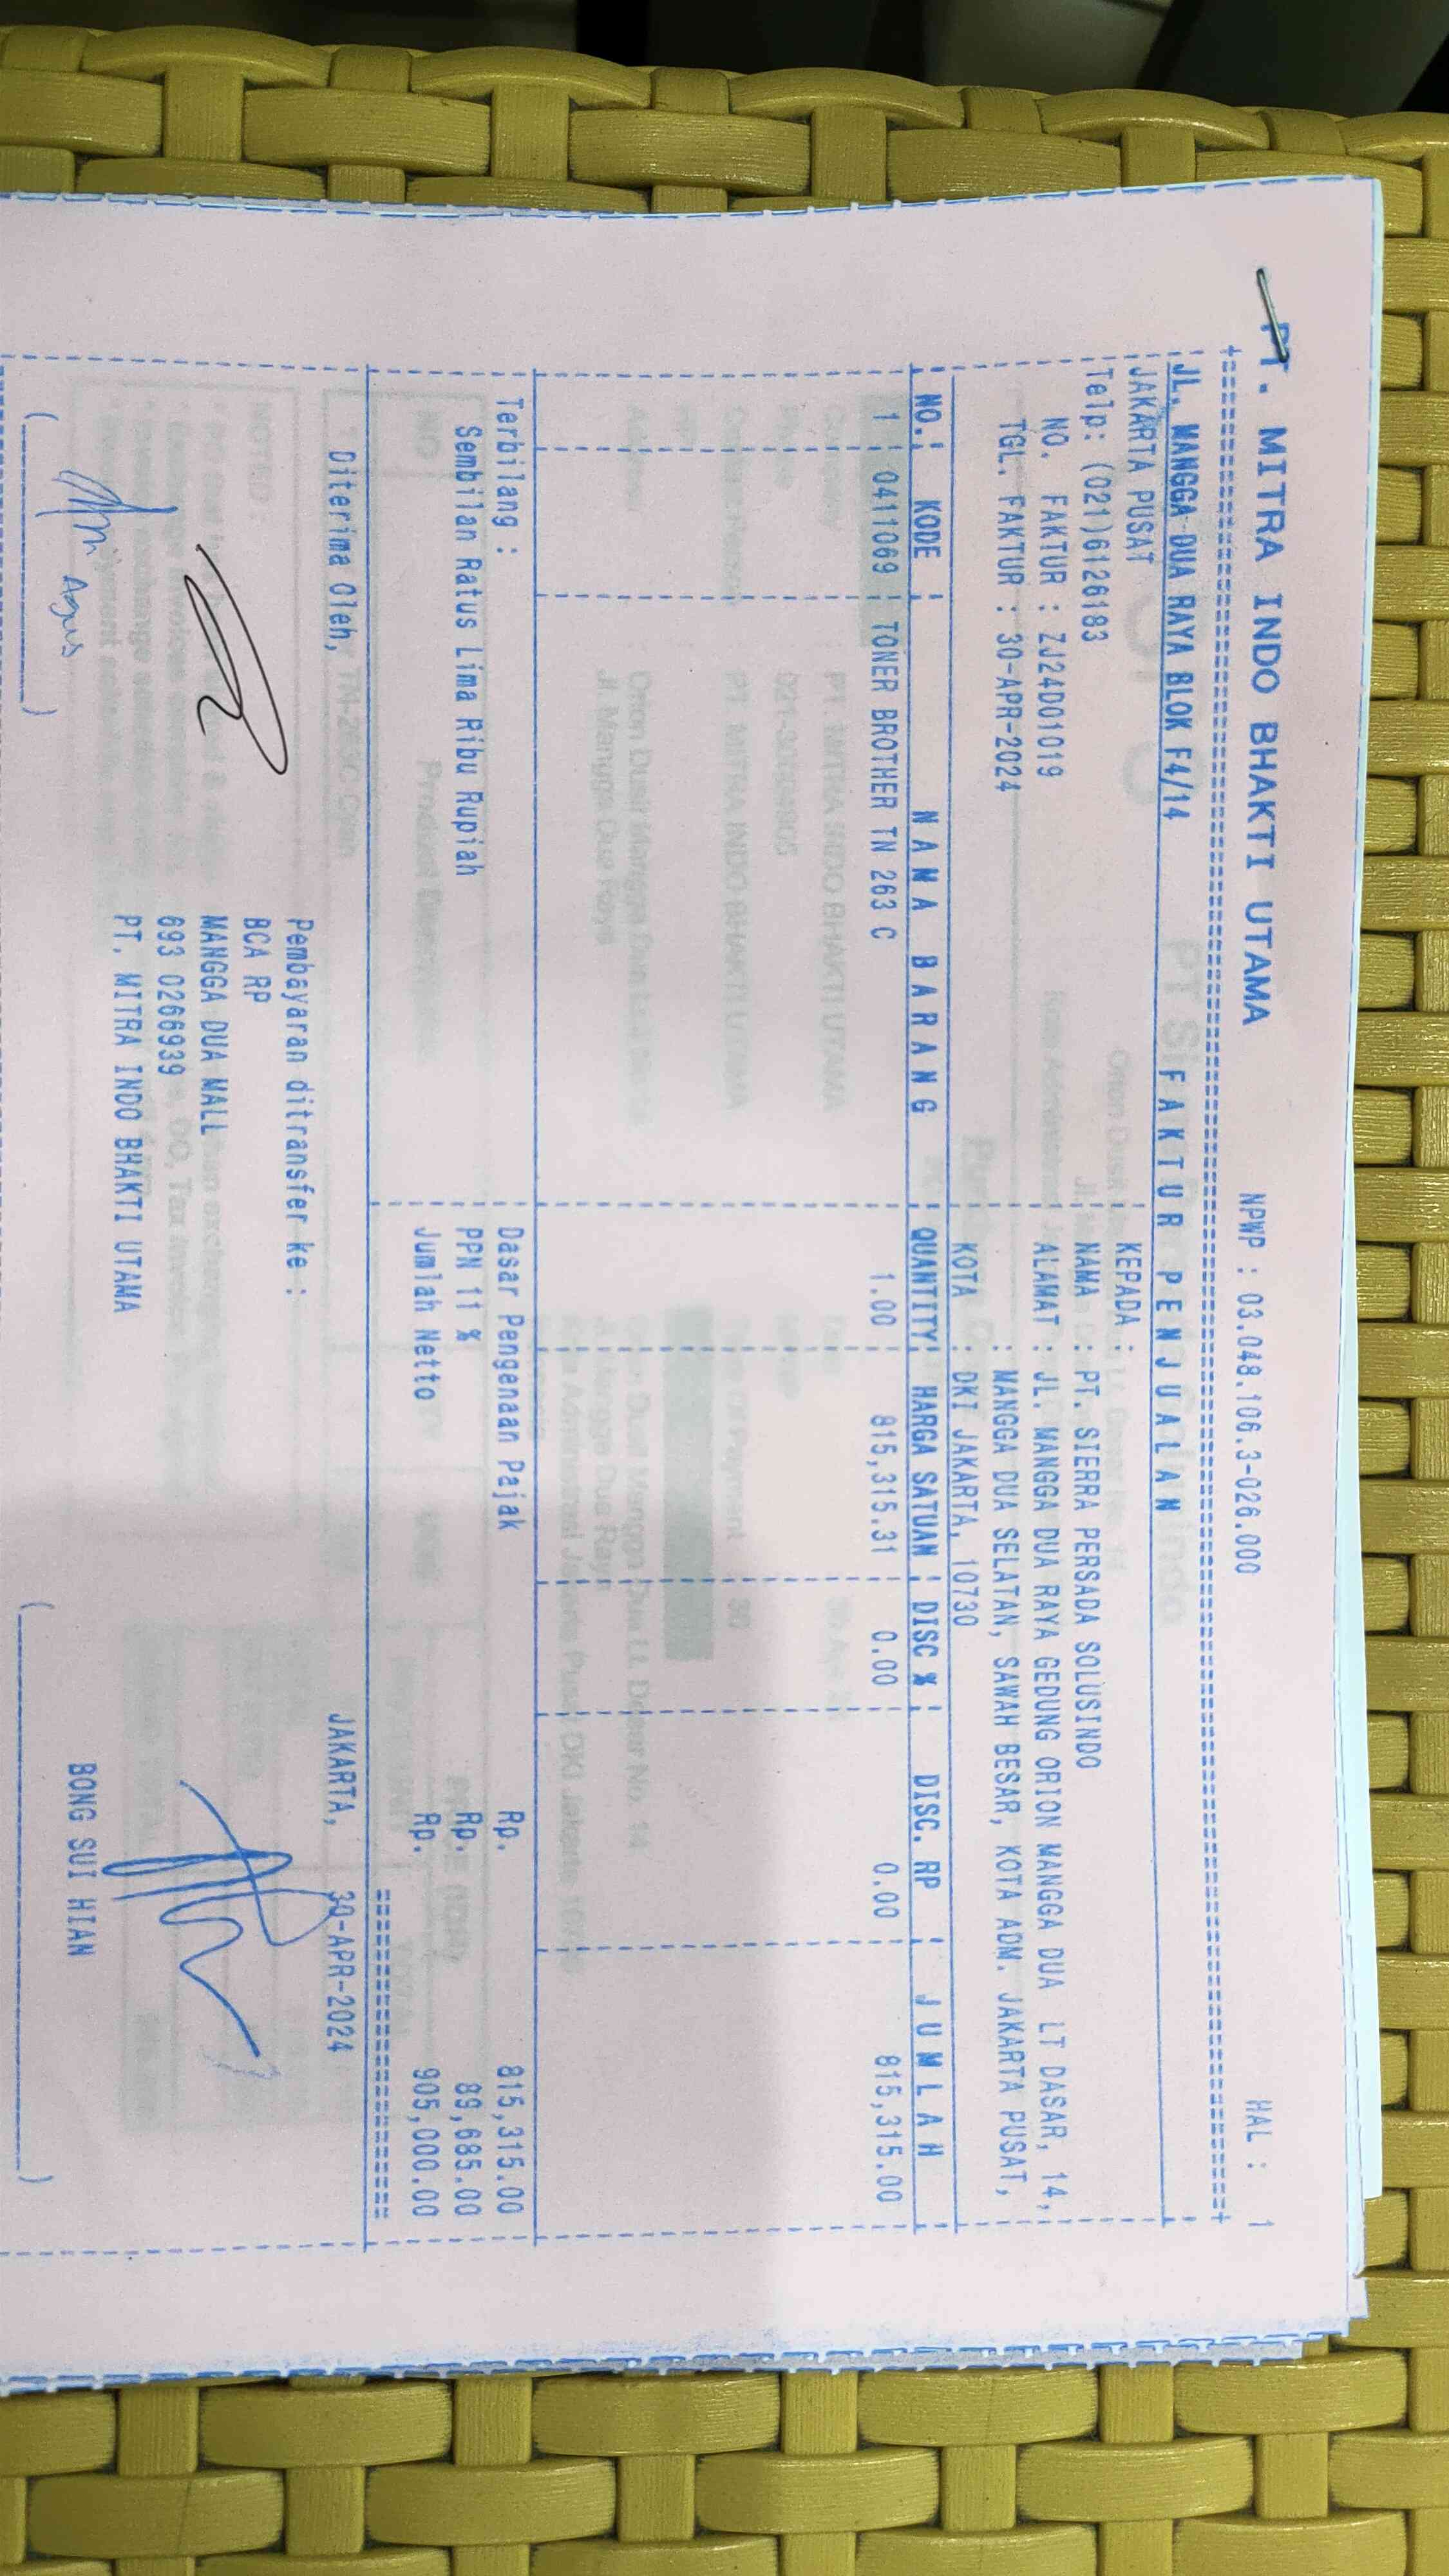 PT. MITRA INDO BHAKTI UTAMA NPWP : 03.048.106.3-026.000 HAL : 1
JL. MANGGA DUA RAYA BLOK F4/14 F A K T U R P E N J U A L A N
JAKARTA PUSAT KEPADA :
Telp: (021)6126183 NAMA : PT. SIERRA PERSADA SOLUSINDO
NO. FAKTUR : ZJ24D01019 ALAMAT : JL. MANGGA DUA RAYA GEDUNG ORION MANGGA DUA LT DASAR, 14,
TGL. FAKTUR : 30-APR-2024 : MANGGA DUA SELATAN, SAWAH BESAR, KOTA ADM. JAKARTA PUSAT,
KOTA : DKI JAKARTA, 10730
NO. KODE N A M A B A R A N G QUANTITY HARGA SATUAN DISC % DISC. RP J U M L A H
1 0411069 TONER BROTHER TN 263 C 1.00 815,315.31 0.00 0.00 815,315.00
Terbilang : Dasar Pengenaan Pajak Rp. 815,315.00
Sembilan Ratus Lima Ribu Rupiah PPN 11 % Rp. 89,685.00
Jumlah Netto Rp. 905,000.00
Diterima Oleh, JAKARTA, 30-APR-2024
Pembayaran ditransfer ke :
BCA RP
MANGGA DUA MALL
693 0266939
PT. MITRA INDO BHAKTI UTAMA
Agus
BONG SUI HIAN